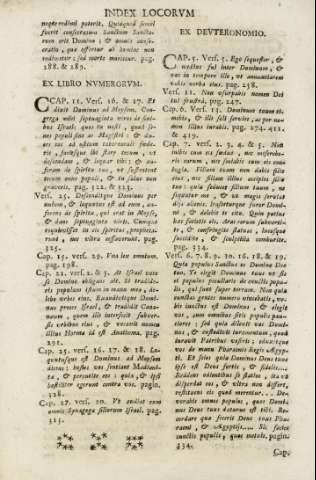 INDEX LOCORVM
redimi poterit. Quidquid semel
fuerit consecratum Sanctum Sancto-
rum erit Domino; & omnis conse-
cratio, quæ offertur ab homine non
redimetur; sed morte morietur. pag.
188. & 189.
EX LIBRO NUMERORVM.
CAP. 11. Vers. 16. & 17. Et
dixit Dominus ad Moysem, Con-
grega mihi septuaginta viros de senio-
bus Israël; quos tu nosti, quod se-
nes populi sint ac Magistri: & du-
ces eos ad ostium tabernaculi fœde-
ris, faciesque ibi stare tecum, ut
descendam, & loquar tibi; & au-
feram de spiritu tuo, ut sustentent
tecum onus populi, & tu solus non
graveris. pag. 122. & 123.
Vers. 25. Descenditque Dominus per
nubem, & loquutus est ad eum, au-
ferens de spiritu, qui erat in Moyse,
& dans septuaginta viris. Cumque
requievisset in eis spiritus, propheta-
runt, nec ultra cessaverunt. pag.
325.
Cap. 15. vers. 29. Una lex omnium.
pag. 198.
Cap. 21. vers. 2. & 3. At Israel voto
se Domino obligans ait. Si tradide-
ris populum istum in manu mea, de-
lebo urbes eius. Exaudivitque Domi-
nus preces Israel, & tradidit Cana-
næum, quem ille interfecit subver-
sis urbibus eius, & vocavit nomen
illius Horma id est Anathema. pag.
291.
Cap. 25. vers. 16. 17. & 18. Lo-
quutusque est Dominus ad Moysen
dicens: hostes vos sentiant Madiani-
tæ, & percutite eos; quia, & ipsi
hostiliter egerunt contra vos. pagin.
328.
Cap. 27. vers. 20. Ut audiat eum
omnis Synagoga filiorum Israel. pag.
323.
EX DEUTERONOMIO.
CAP. 5. Vers. 5. Ego sequester, &
medius fui inter Dominum, &
vos in tempore illo, ut annuntiarem
vobis verba eius. pag. 258.
Vers. 11. Non usurpabis nomen Dei
tui frustra. pag. 247.
Cap. 6. Vers. 13. Dominum tuum ti-
mebis, & illi soli servies, ac per no-
men illius iurabis. pag. 274. 411.
& 419.
Cap. 7. vers. 2. 3. 4. & 5. Non
inibis cum eis fœdus, nec misereбe-
ris earum, nec sociabis cum eis con-
iugia. Filiam tuam non dabis filio
eius, nec filiam illius accipies filio
tuo: quia seducet filium tuum, ne
sequatur me, & ut magis serviat
diis alienis. Irasceturque furor Domi-
ni, & delebit te cito. Quin potius
hæc facietis eis. Aras earum subverti-
te, & confringite statuas, lucosque
succidite, & sculptilia comburite.
pag. 334.
Vers. 6. 7. 8. 9. 10. 16. 18. & 19.
Quia populus Sanctus es Domino Deo
tuo. Te elegit Dominus tuus ut sis
ei populus peculiaris de cunctis popu-
lis, qui sunt super terram. Non quia
cunctas gentes numero vincebatis, vo-
bis iunctus est Dominus, & elegit
vos, cum omnibus sitis populis pau-
ciores; sed quia dilexit vos Domi-
nus, & custodivit iuramentum, quod
iuravit Patribus vestris: eduxitque
vos de manu Pharaonis Regis Ægyp-
ti. Et scies quia Dominus Deus tuus
ipse est Deus fortis, & fidelis....
Reddens odientibus se statim, ita ut
disperdat eos, & ultra non differat,
restituens eis quod merentur... De-
vorabis omnes populos, quos Domi-
nus Deus tuus daturus est tibi. Re-
cordare quæ fecerit Deus tuus Pha-
raoni, & Ægyptiis.... Sic faciet
cunctis populis, quos metuis. pagin.
334.
Cap.